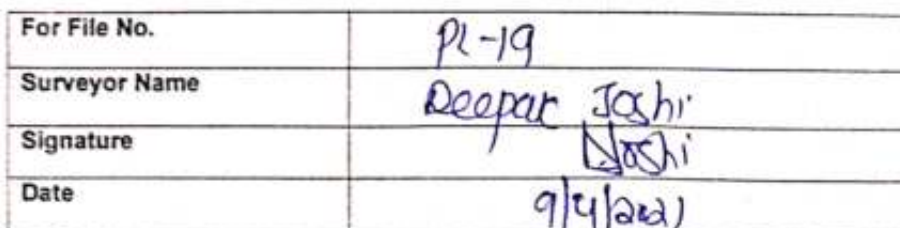 For File No. PL-19
Surveyor Name Deepak Joshi
Signature DJoshi
Date 9/4/2021